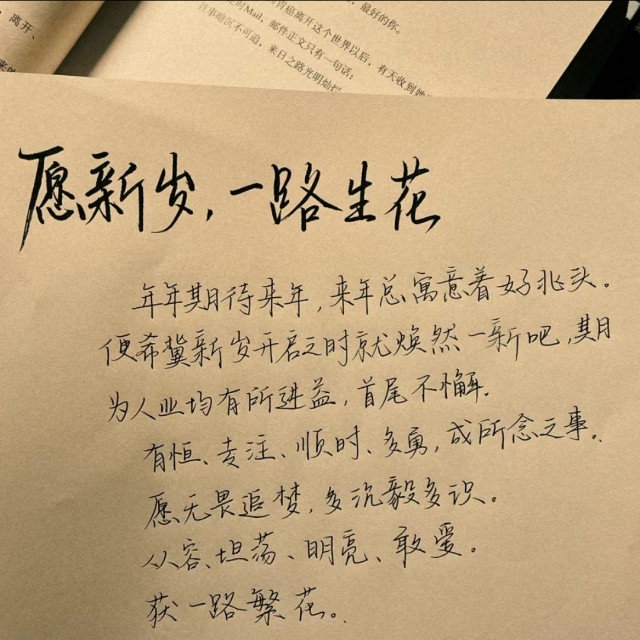 离开、
最好的你。
离开这个世界以后，有天收到她
Mail，邮件正文只有一句话：
往事暗沉不可追，来日之路光明灿烂
愿新岁，一路生花
年年期待来年，来年总寓意着好兆头。
便希冀新岁开启之时就焕然一新吧，期
为人业均有所进益，首尾不懈.
有恒、专注、顺时、多勇，成所念之事。
愿无畏追梦，多沉毅多识。
从容、坦荡、明亮、敢爱。
获一路繁花。